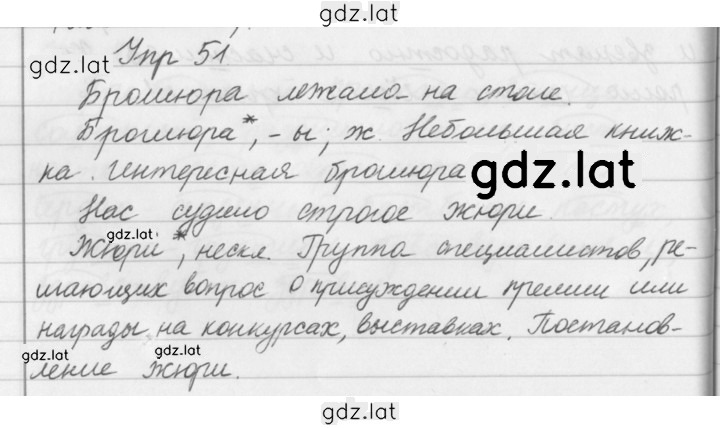 gdz.lat
Упр 51.
gdz.lat
Брошюра лежала на столе.
Брошюра*, -ы; ж. Небольшая книж-
ка. Интересная брошюра
gdz.lat
Нас судило строгое жюри
gdz.lat
Жюри*, нескл. Группа специалистов, ре-
шающих вопрос о присуждении премии или
награды на конкурсах, выставках. Постанов-
gdz.lat gdz.lat
ление жюри.
gdz.lat